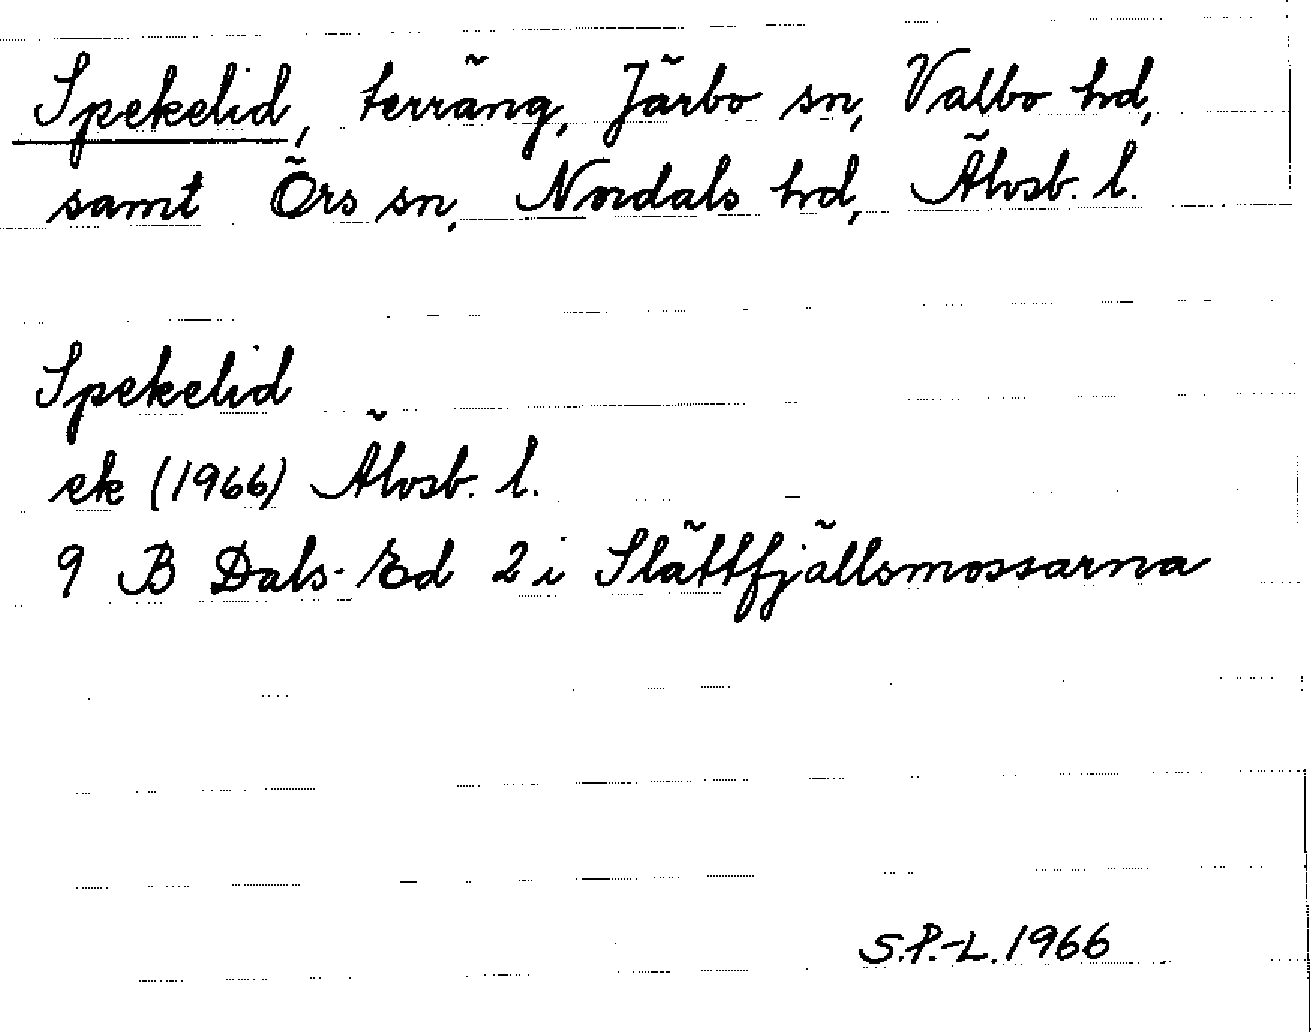 Spekelid, terräng, Järbo sn, Valbo hd,
samt Örs sn, Nordals hd, Älvsb. l.
Spekelid
ek (1966) Älvsb. l.
9 B Dals-Ed 2 i Slättfjällsmossarna
S.P.-L. 1966